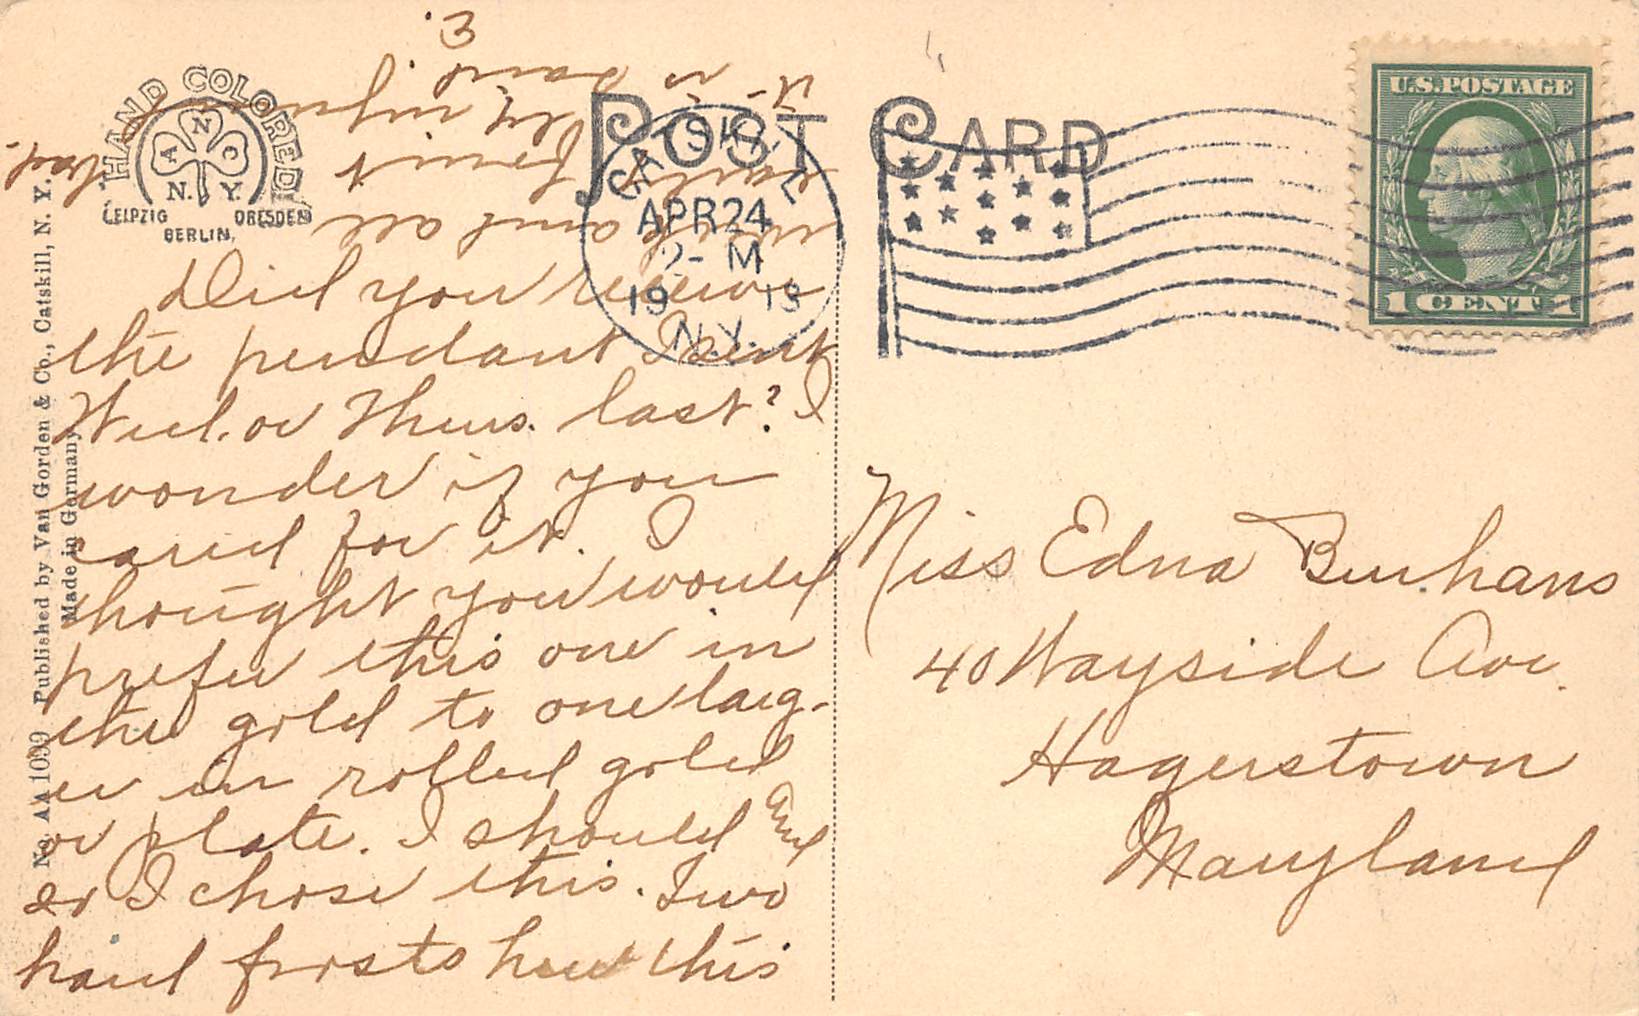 HAND COLORED
A N C
N. Y.
LEIPZIG DRESDEN
BERLIN,
POST CARD
CATSKILL
APR 24
2- M
1913
N.Y.
U.S. POSTAGE
1 CENT 1
No. AA 1099 Published by Van Gorden & Co., Catskill, N. Y.
Made in Germany
Did you receive
the pendant I sent
Wed. or Thurs. last? I
wonder if you
cared for it. I
thought you would
prefer this one in
the gold to one larg-
er in rolled gold
or plate. I should and
so I chose this. Two
hard frosts here this
week and all
early fruit
is injured
it is said.
E.
Miss Edna Burhans
40 Wayside Ave.
Hagerstown
Maryland